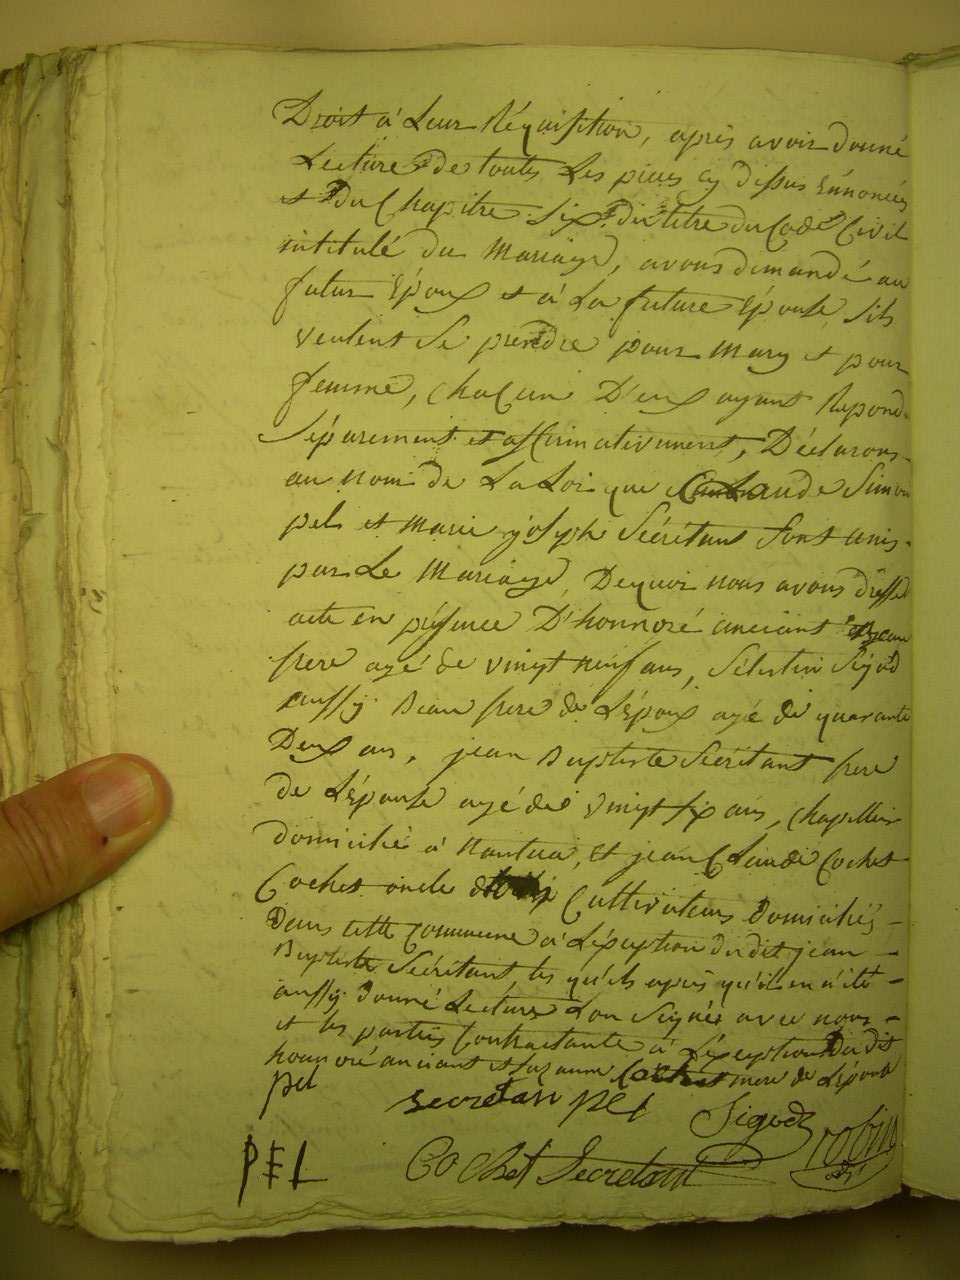 Droit a Leur Réquisition, après avoir donné
Lecture de toutes Les pieces cy dissus énnoncées
et Du Chapitre Six du titre du Code Civil
intitulé du Mariage, avons demandé au
futur Epoux et a La future Epouse, sils
veulent Se prendre pour mary et pour
femme, chaCun D'eux ayant Repond
Séparement et affirmativement, Déclarons
au nom de La Loi que Claude Simon
pel et marie joseph Sécrétant sont unis
par Le Mariage, Dequoi nous avons dressé
acte en présence D'honnoré anciant Beau
frere agé de vingt neuf ans, Sélestin Sigod
aussy Beau frere de L'Epoux agé de quarante
Deux ans, jean Baptiste Sécrétant frere
de L'épouse agé de vingt six ans, chapellier
domicilié a Nantua, et jean Claude Cochet
Cochet oncle Cultivateurs Domiciliés
Dans cette Commune a L'éxception du dit jean
Baptiste Sécrétant, les quels après qu'il en a été
aussy donné Lecture L'on Signés avec nous
et les parties Contractante a L'éxception Du dit
honnoré anciant et Cochet mere de L'épouse
pel
secretan pel
Sigod
robin
PEL
Cochet Secretant